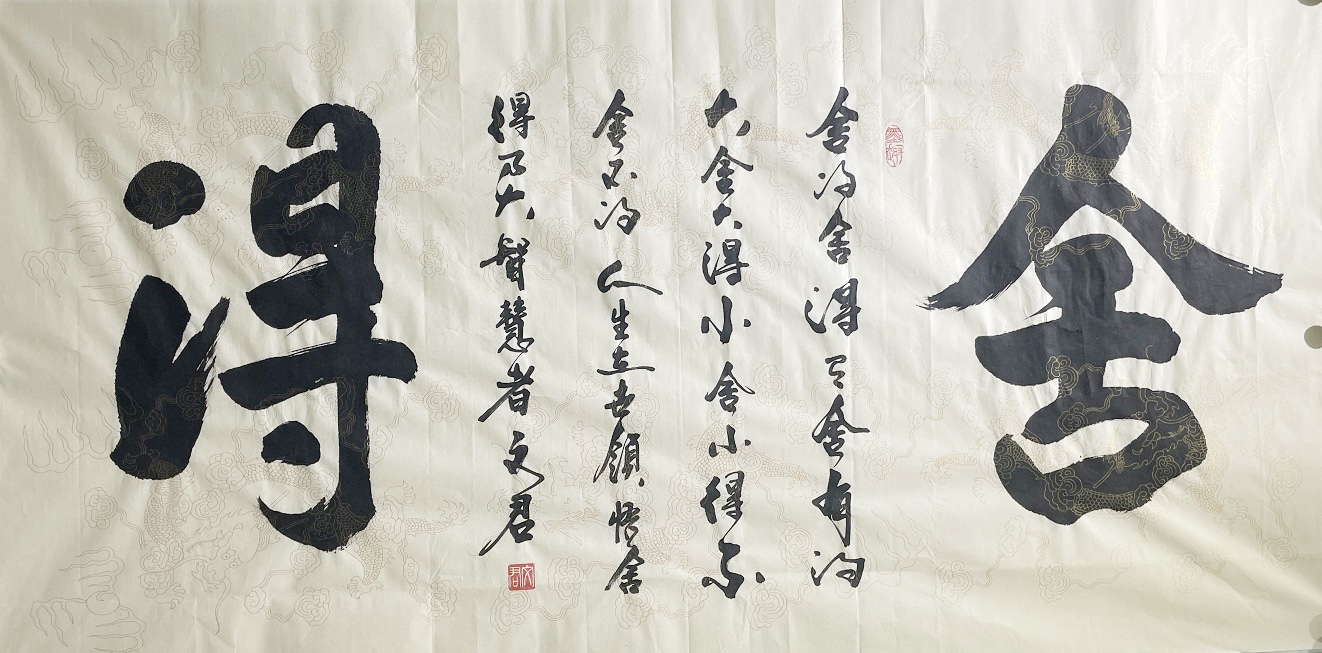 舍
舍得舍得有舍有得
大舍大得小舍小得不
舍不得人生立世领悟舍
得乃大智慧者文君
文君
得